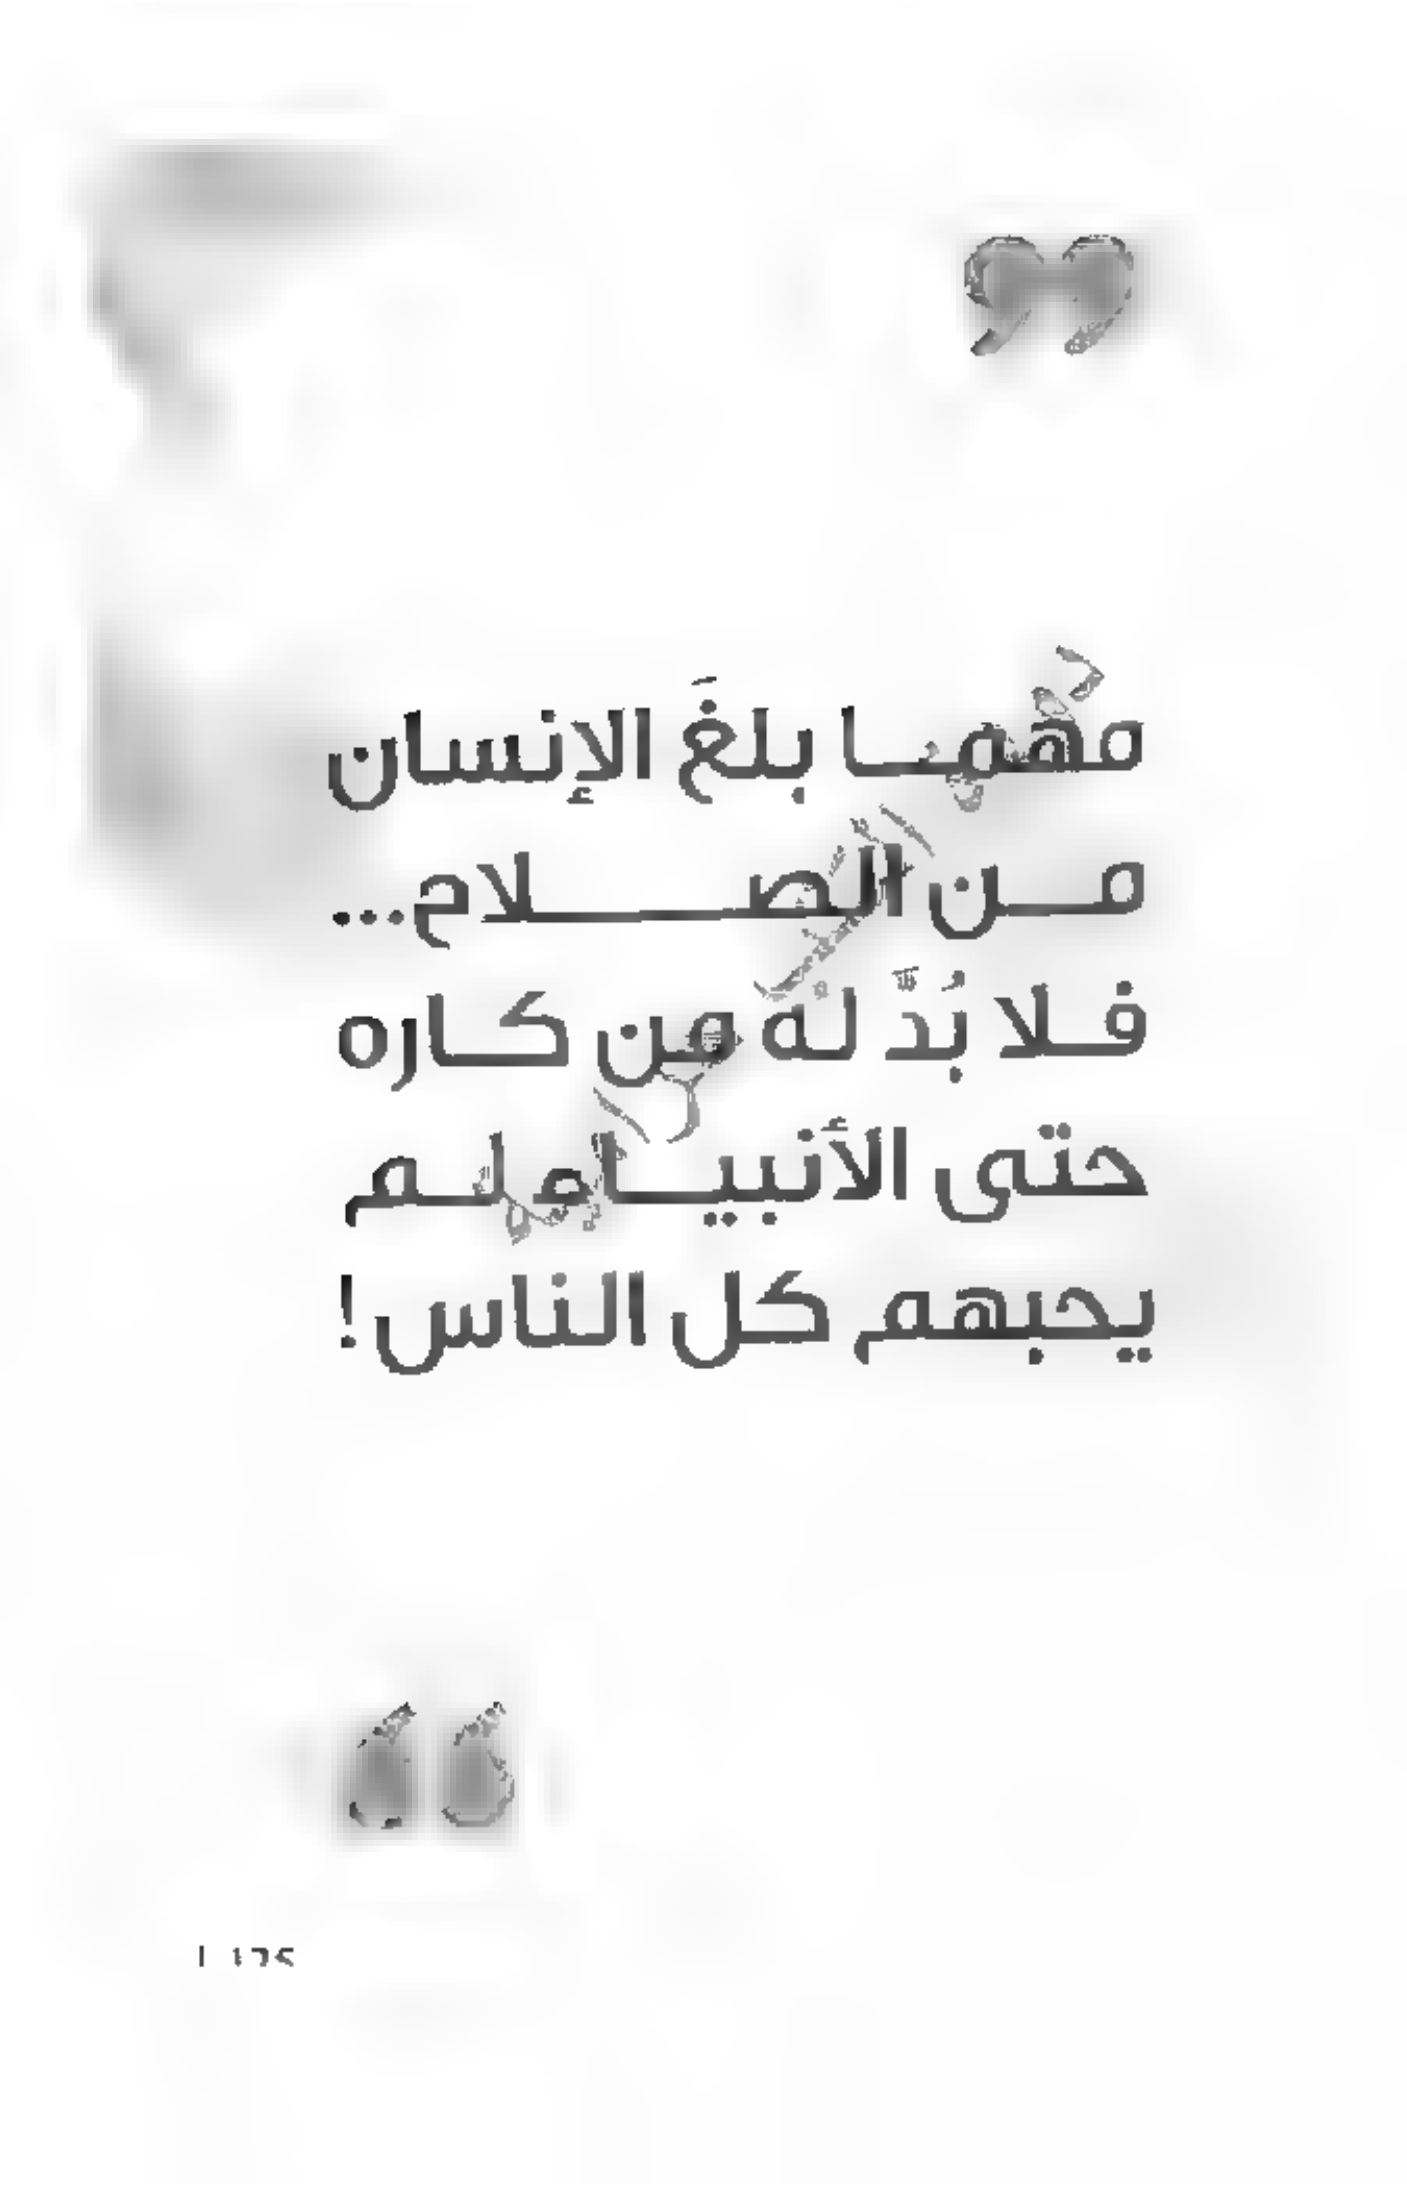 مهمـــا بلغَ الإنسان
مـــن الصـــــــلاح...
فـلا بُدَّ له من كـاره
حتى الأنبيـــاء لـم
يحبهم كل الناس!